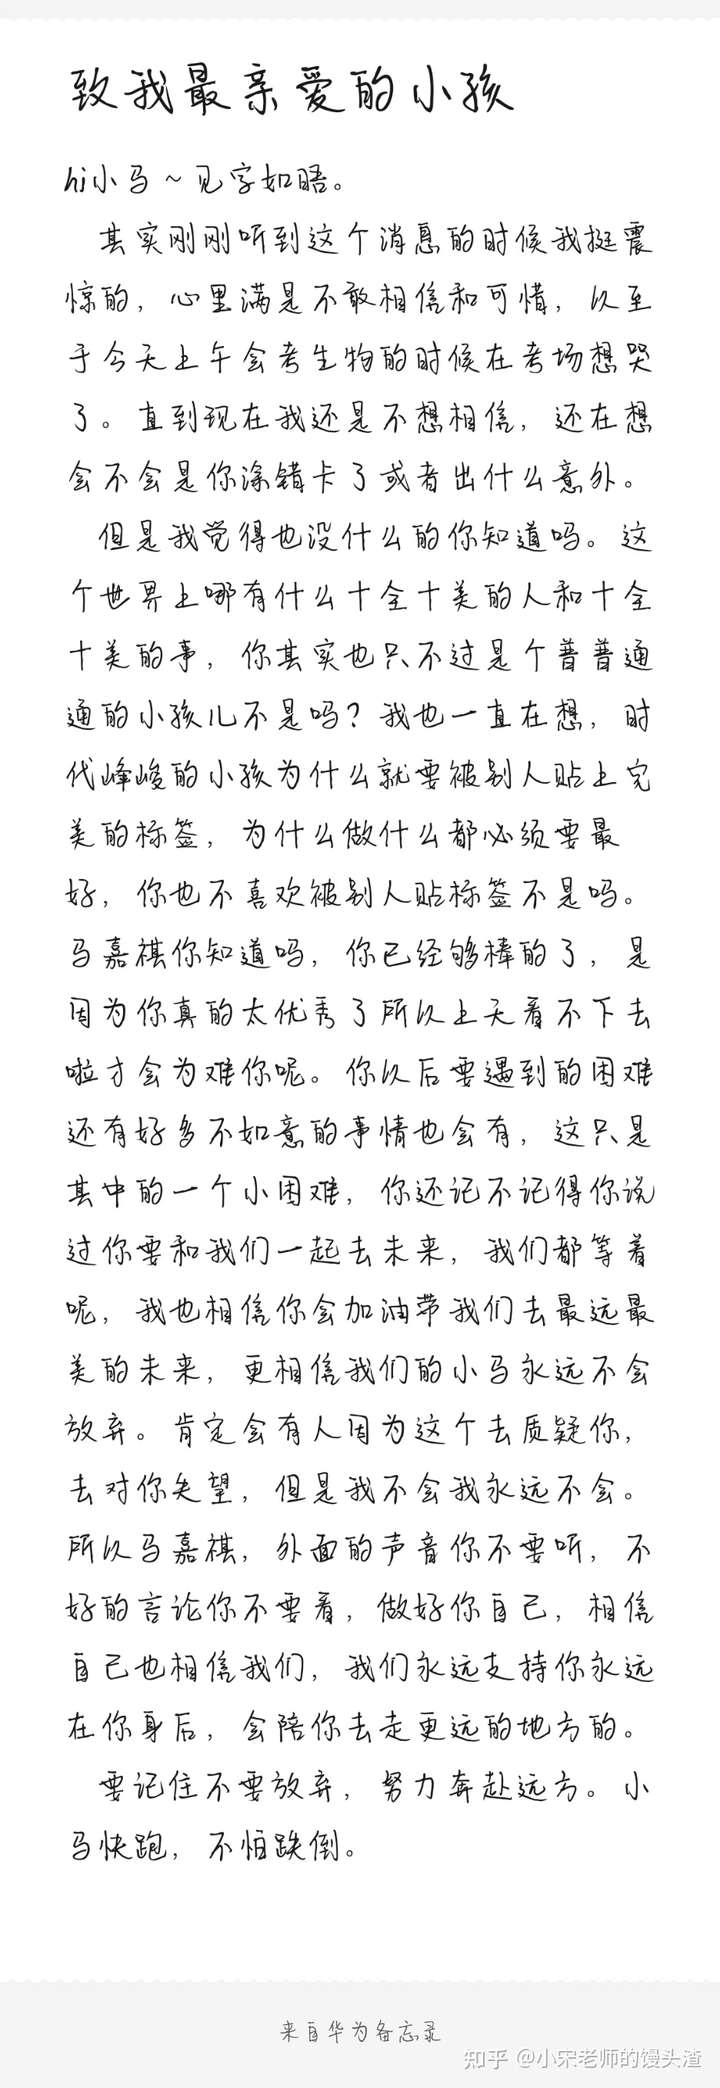 致我最亲爱的小孩
hi小马~见字如晤。
其实刚刚听到这个消息的时候我挺震
惊的，心里满是不敢相信和可惜，以至
于今天上午会考生物的时候在考场想哭
了。直到现在我还是不想相信，还在想
会不会是你涂错卡了或者出什么意外。
但是我觉得也没什么的你知道吗。这
个世界上哪有什么十全十美的人和十全
十美的事，你其实也只不过是个普普通
通的小孩儿不是吗？我也一直在想，时
代峰峻的小孩为什么就要被别人贴上完
美的标签，为什么做什么都必须要最
好，你也不喜欢被别人贴标签不是吗。
马嘉祺你知道吗，你已经够棒的了，是
因为你真的太优秀了所以上天看不下去
啦才会为难你呢。你以后要遇到的困难
还有好多不如意的事情也会有，这只是
其中的一个小困难，你还记不记得你说
过你要和我们一起去未来，我们都等着
呢，我也相信你会加油带我们去最远最
美的未来，更相信我们的小马永远不会
放弃。肯定会有人因为这个去质疑你，
去对你失望，但是我不会我永远不会。
所以马嘉祺，外面的声音你不要听，不
好的言论你不要看，做好你自己，相信
自己也相信我们，我们永远支持你永远
在你身后，会陪你去走更远的地方的。
要记住不要放弃，努力奔赴远方。小
马快跑，不怕跌倒。
来自华为备忘录
知乎 @小宋老师的馒头渣